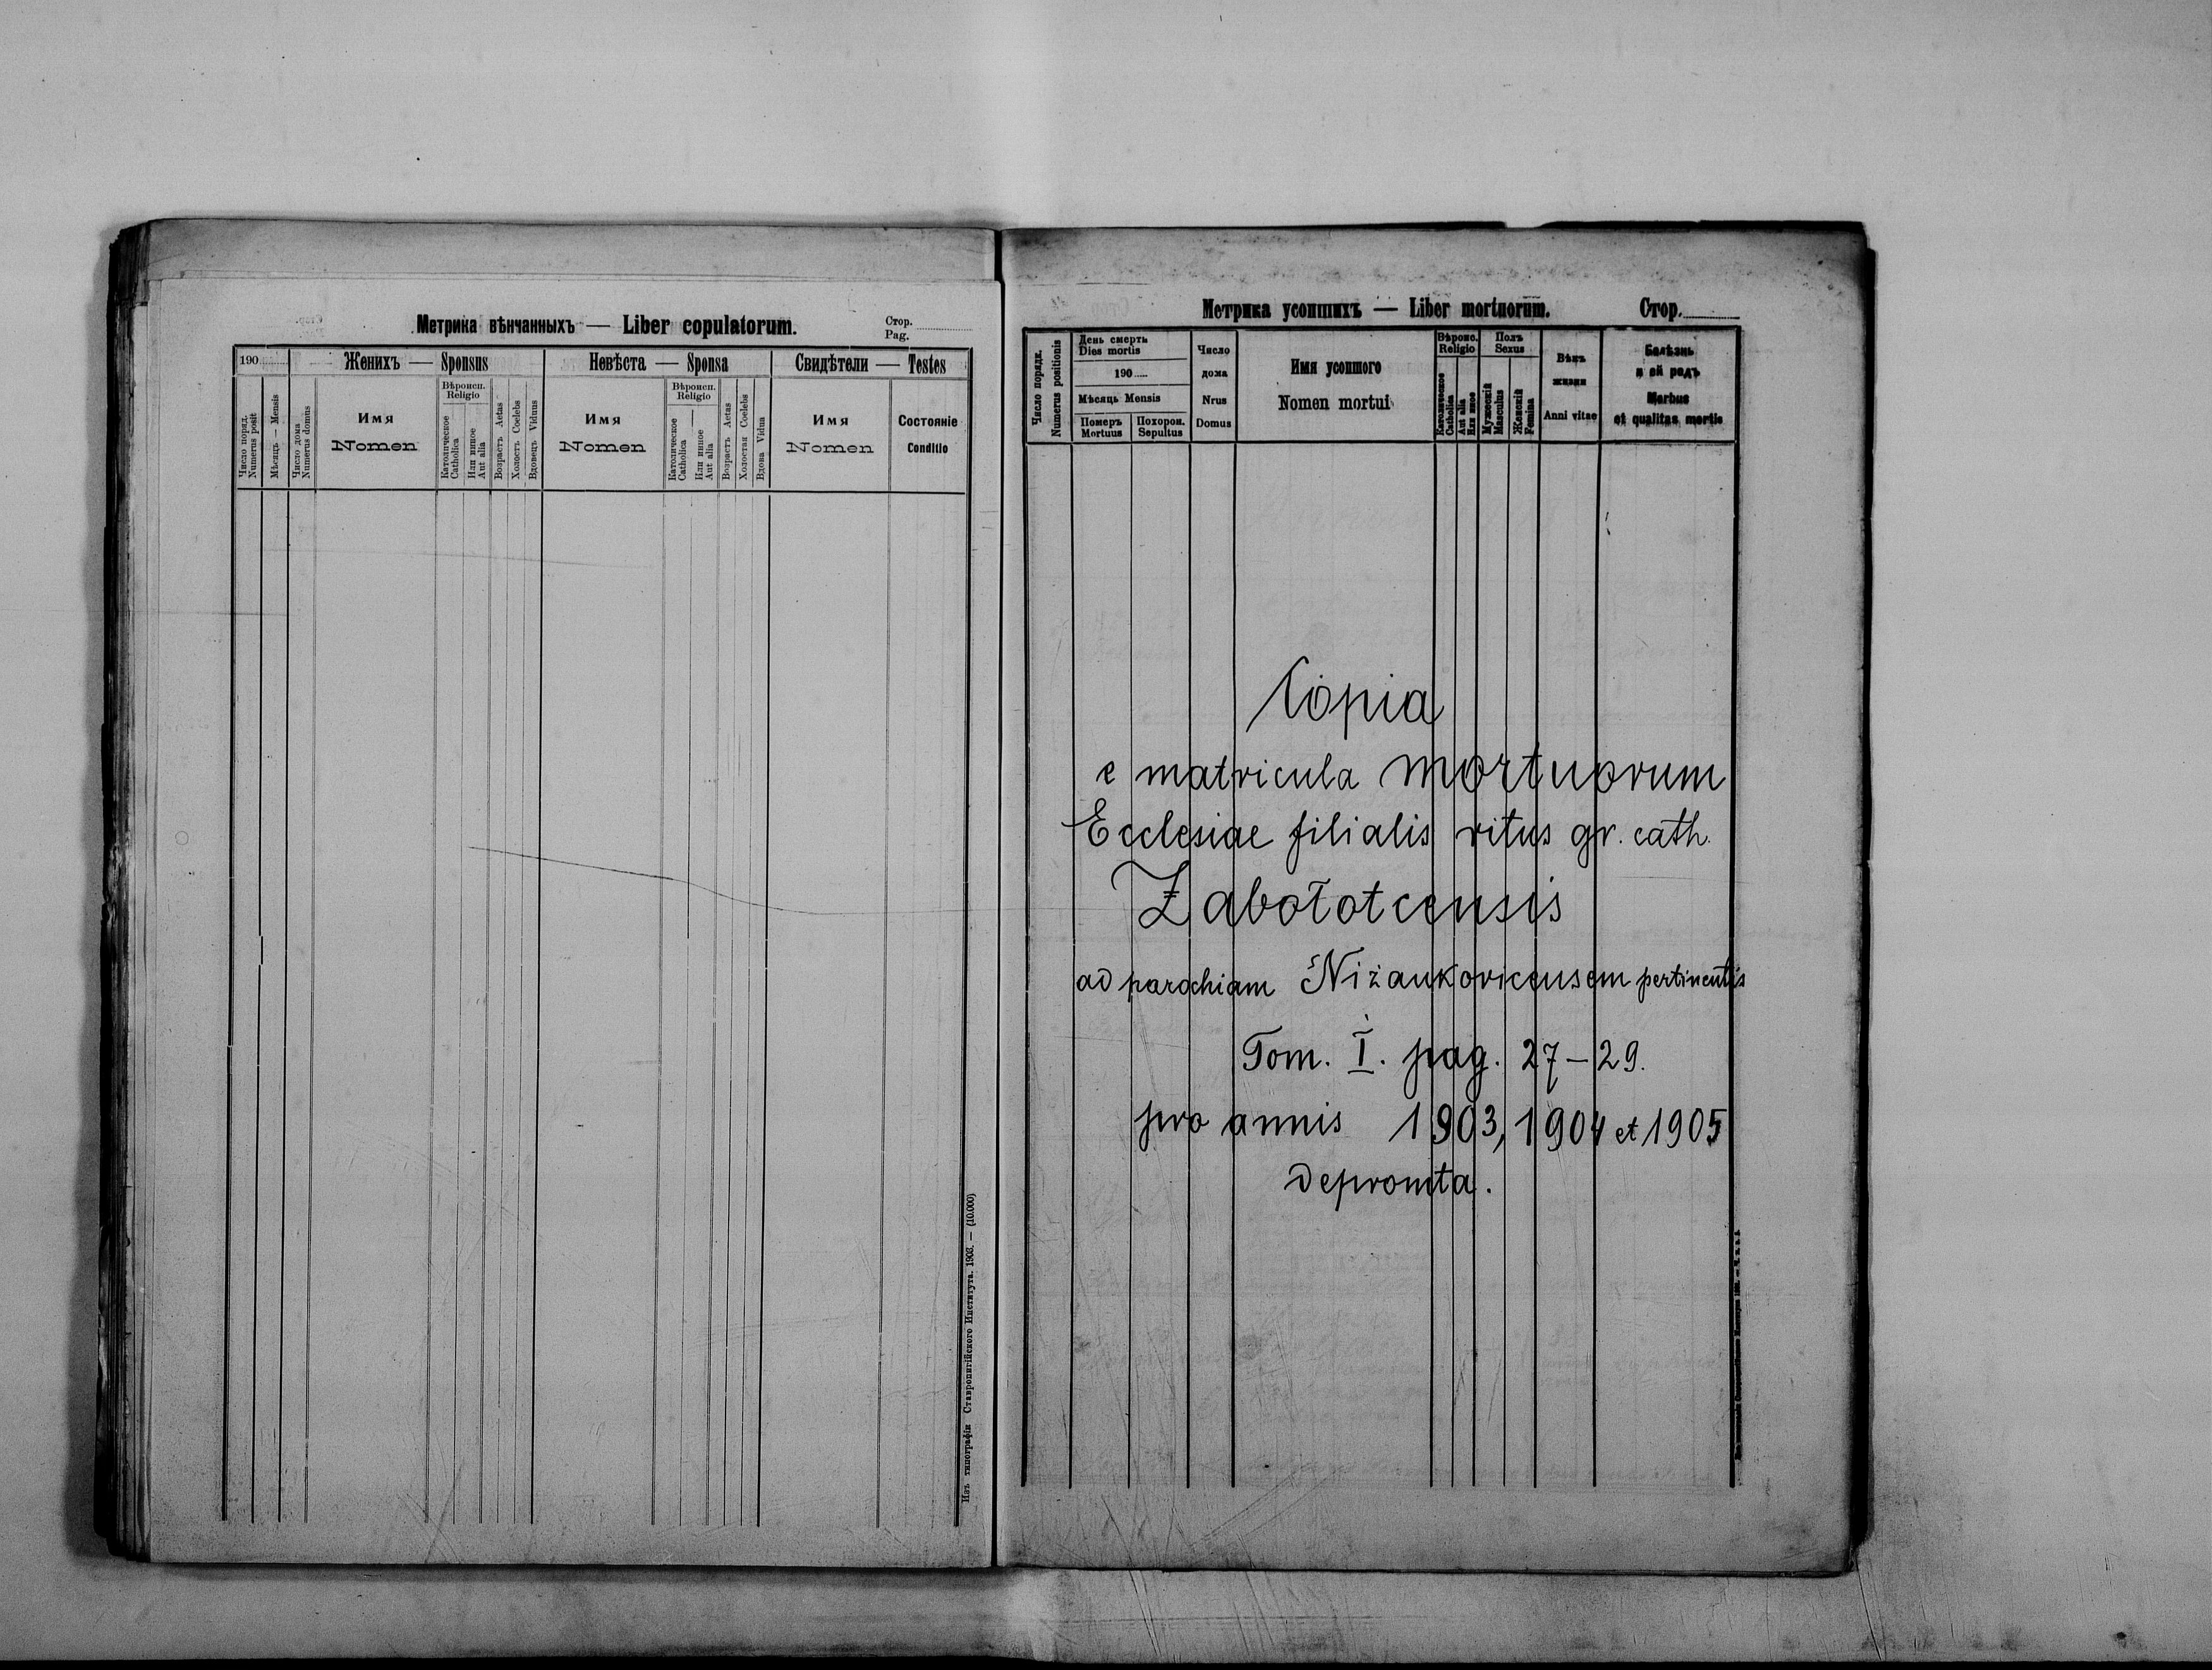 Метрика вѣнчанныхъ — Liber copulatorum.
Стор.
Pag.
190
Женихъ — Sponsus
Невѣста — Sponsa
Свидѣтели — Testes
Число поряд.
Numerus posit
Мѣсяцъ — Mensis
Число дома
Numerus domus
Имя
Nomen
Вѣроисп.
Religio
Католическое
Catholica
Или иное
Aut alia
Возрастъ Aetas
Холостъ Coelebs
Вдовецъ Viduus
Имя
Nomen
Вѣроисп.
Religio
Католическое
Catholica
Или иное
Aut alia
Возрастъ Aetas
Холостая Coelebs
Вдова Vidua
Имя
Nomen
Состояніе
Conditio
Изъ типографіи Ставропигійского Института. 1903. — (10.000)
Метрика усопшихъ — Liber mortuorum.
Стор.
Число порядк.
Numerus positionis
День смерть
Dies mortis
190
Мѣсяць Mensis
Померъ
Mortuus
Похорон.
Sepultus
Число
дома
Nrus
Domus
Имя усопшого
Nomen mortui
Вѣроис.
Religio
Католическое
Catholica
Aut alia
Или иное
Полъ
Sexus
Мужескій
Masculus
Женскій
Femina
Вѣкъ
жизни
Anni vitae
Болѣзнь
и ей родъ
Morbus
et qualitas mortis
Copia
e matricula mortuorum
Ecclesiae filialis ritus gr. cath.
Zabołotcensis
ad parochiam Niżankovicensem pertinentis
Tom. I. pag. 27–29.
pro annis 1903, 1904 et 1905
depromta.